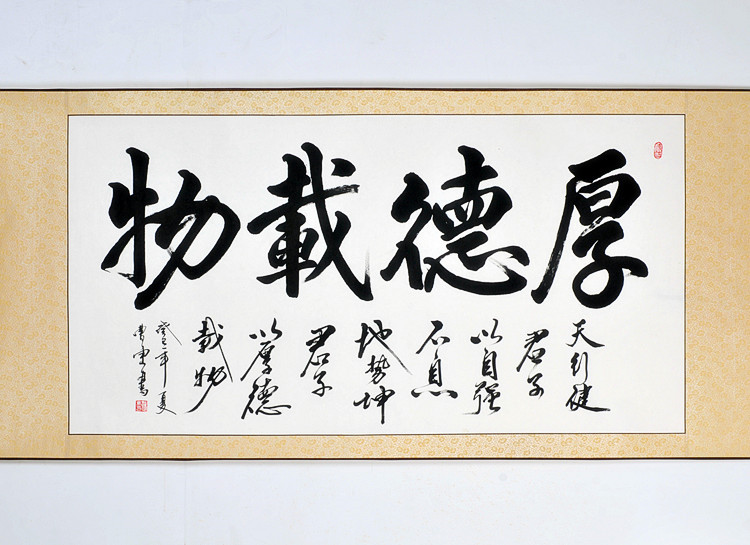 厚德載物
天行健
君子
以自强
不息
地势坤
君子
以厚德
載物
癸巳年夏
書